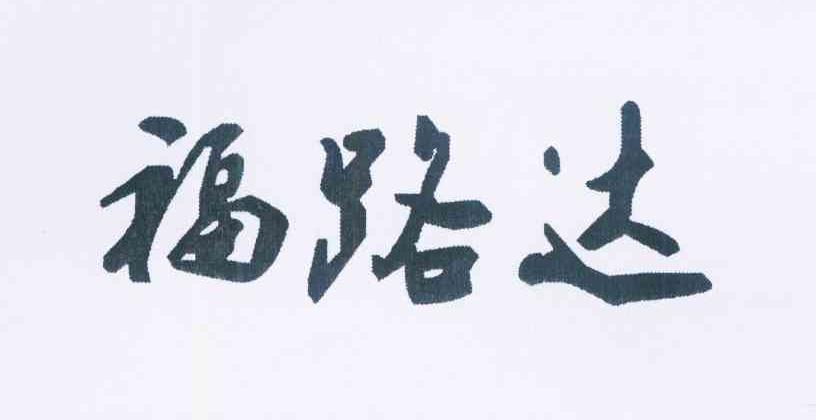 福路达